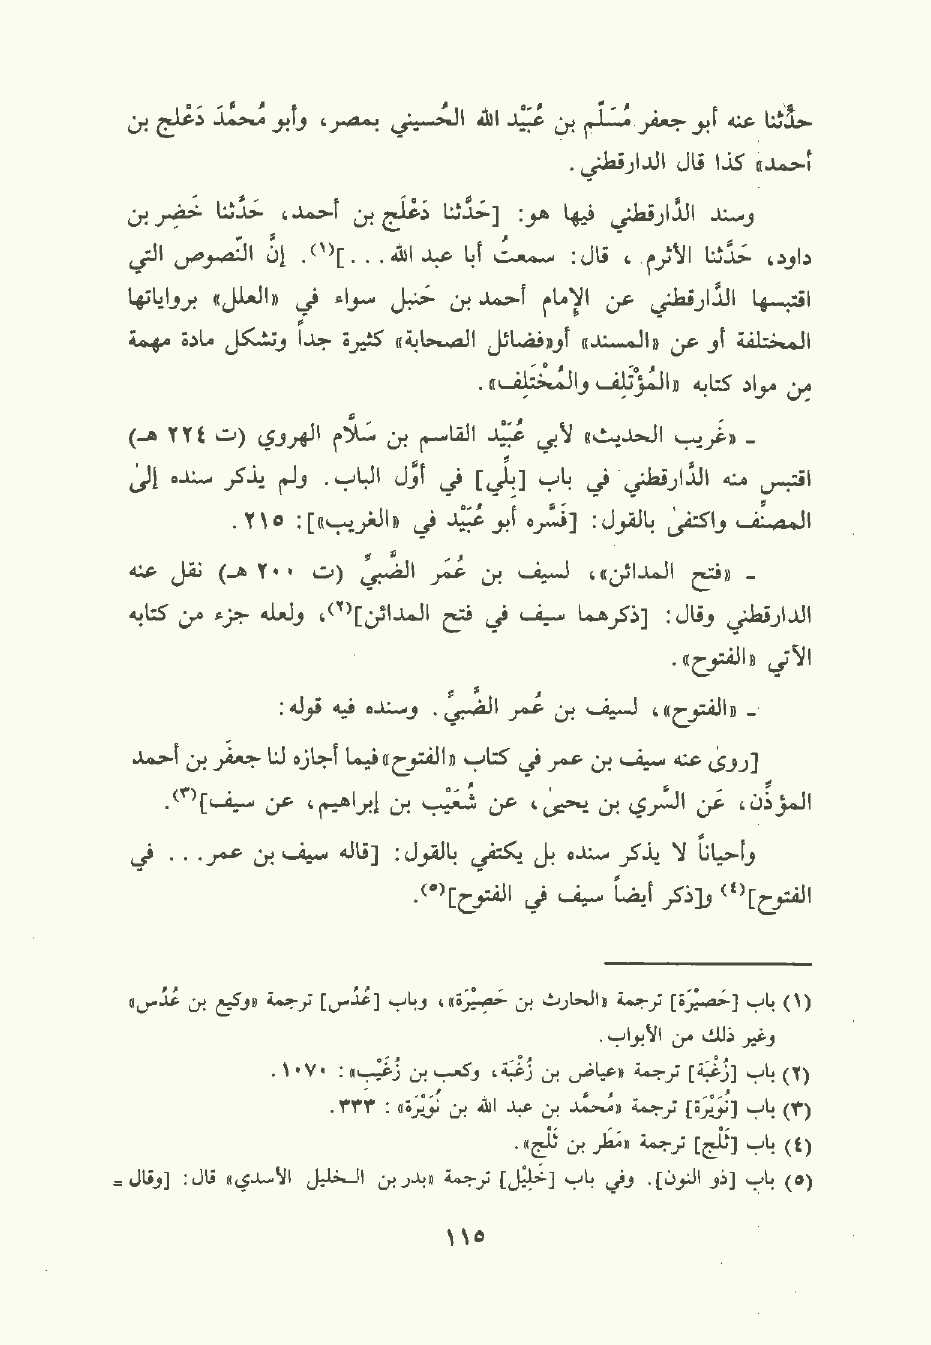 حدّثنا عنه أبو جعفر مُسَلَّم بن عُبَيْد الله الحُسيني بمصر، وأبو مُحمَّد دَعْلج بن
أحمد» كذا قال الدارقطني.
وسند الدَّارقطني فيها هو: [حَدَّثنا دَعْلَج بن أحمد، حَدَّثنا خَضِر بن
داود، حَدَّثنا الأثرم، قال: سمعتُ أبا عبد الله. . .](١). إنَّ النَّصوص التي
اقتبسها الدَّارقطني عن الإمام أحمد بن حَنبل سواء في «العلل» برواياتها
المختلفة أو عن «المسند» أو«فضائل الصحابة» كثيرة جداً وتشكل مادة مهمة
من مواد كتابه «المُؤتَلِف والمُخْتَلِف».
ـ «غَريب الحديث» لأبي عُبَيْد القاسم بن سَلاَّم الهروي (ت ٢٢٤ هـ)
اقتبس منه الدَّارقطني في باب [بِلِّي] في أوَّل الباب. ولم يذكر سنده إلىٰ
المصنِّف واكتفىٰ بالقول: [فَسَّره أبو عُبَيْد في «الغريب»]: ٢١٥.
ـ «فتح المدائن»، لسيف بن عُمَر الضَّبيِّ (ت ٢٠٠ هـ) نقل عنه
الدارقطني وقال: [ذكرهما سيف في فتح المدائن](٢)، ولعله جزء من كتابه
الآتي «الفتوح».
ـ «الفتوح»، لسيف بن عُمر الضَّبيِّ. وسنده فيه قوله:
[روىٰ عنه سيف بن عمر في كتاب «الفتوح» فيما أجازه لنا جعفَر بن أحمد
المؤذِّن، عَن السَّري بن يحيىٰ، عن شُعَيْب بن إبراهيم، عن سيف](٣).
وأحياناً لا يذكر سنده بل يكتفي بالقول: [قاله سيف بن عمر. . . في
الفتوح](٤) و[ذكر أيضاً سيف في الفتوح](٥).
(١) باب [خَصيْرَة] ترجمة «الحارث بن خَصيْرَة»، وباب [عُدَس] ترجمة «وكيع بن عُدَس»
وغير ذلك من الأبواب.
(٢) باب [زُغْبَة] ترجمة «عياض بن زُغْبَة، وكعب بن زُغَيْب»: ١٠٧٠.
(٣) باب [نُوَيْرَة] ترجمة «مُحمَّد بن عبد الله بن نُوَيْرَة»: ٣٣٣.
(٤) باب [ثَلْج] ترجمة «مَطَر بن ثَلْج».
(٥) باب [ذو النون]. وفي باب [خَلِيْل] ترجمة «بدر بن الخليل الأسدي» قال: [وقال =
١١٥